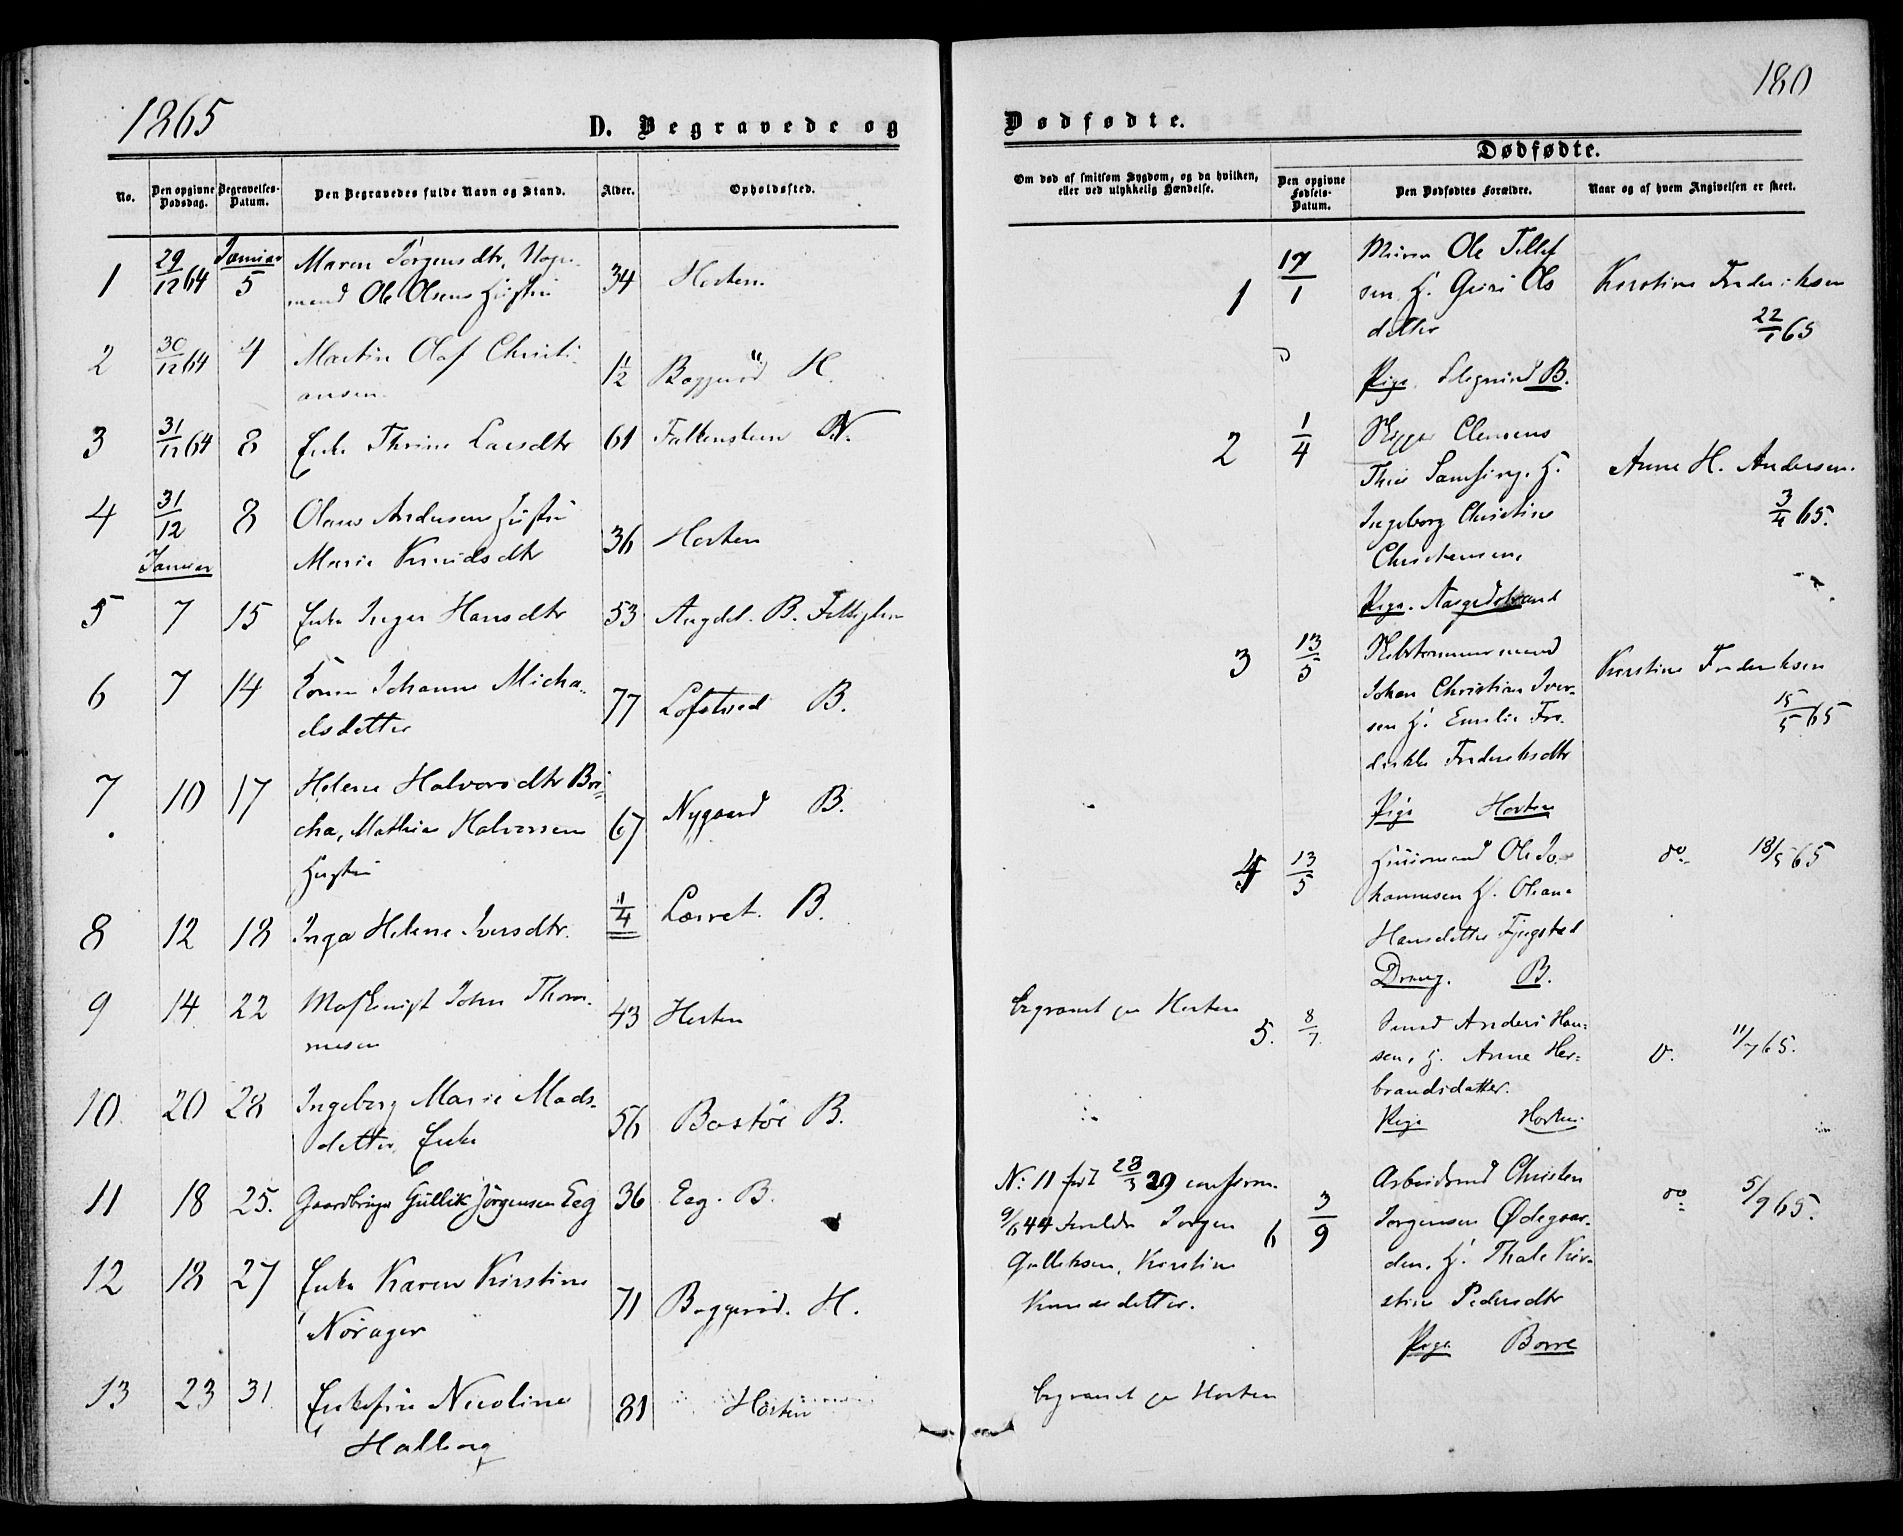 1865
D. Begravede og
No.
Den opgivne Dødsdag.
Begravelses-Datum.
Den Begravedes fulde Navn og Stand.
Alder.
Opholdssted.
1 29/12 64 Januar 5 Maren Jørgensdtr,
mand Ole Olsens Hustru 34 Horten
2 30/12 64 4 Martin Olaf Christi-
ansen 1½ Baggerød H.
3 31/12 64 8 Enke Thrine Larsdtr 61 Falkensteen N.
4 31/12 8 Olaus Andersens Hustru
Marie Knudsdtr 36 Horten
Januar
5 7 15 Enke Inger Hansdtr 53 Augdal. B.
6 7 14 Kone Johanne Micha-
elsdatter 77 Løfstued B.
7 10 17 Helene Halvorsdtr Bri-
cha, Mathias Halvorsens
Hustru 67 Nygaard B.
8 12 18 Inga Helene Iversdtr. 1/4 Lørret. B.
9 14 22 John Thom-
mesen 43 Horten
10 20 28 Ingeborg Marie Mads-
datter, Enke 56 Bastøe B.
11 18 25. Gaardbruger Gullik Jørgensen Eeg 36 Eeg. B.
12 18 27 Enke Karen Kirstine
Nørager 71 Baggerød. H.
13 23 31. Enkefru Nicoline
Halborg 81 Horten
180
Dødfødte.
Om død af smitsom Sygdom, og da hvilken,
eller ved ulykkelig Hændelse.
Dødfødte.
Den opgivne Fødsels-Datum.
Den Dødfødtes Forældre.
Naar og af hvem Angivelsen er skeet.
1 17/1 Murer Ole Tellef
sen, H. Guri Ols
datter Kirstine Frederiksen
22/1 65
Pige. B.
2 1/4 Skipper Clemens
Thie H.
Ingeborg Christine
Christensen, Anne H. Andersen.
3/4 65.
Pige. Aasgaardstrand
3 13/5
Johan Christian Iver-
sen H. Emilie Fre-
derikke Frederiksdtr Kirstine Frederiksen
15/5 65
Pige Horten
4 13/5 Huusmand Ole Jo-
hannesen H. Oleane
Hansdatter Fyugstad do 18/5 65
Dreng. B.
begravet paa Horten
5. 8/7. Smed Anders Han-
sen, H. Anne Her-
brandsdatter. D. 11/7 65.
Pige Horten
N: 11 født 23/3 29 confirm.
9/6 44 Forældre Jørgen
Gulliksen, Kirstine
datter.
6 3/9 Arbeidsmd Christen
Jørgensen Ødegaar-
den, H. Thale Kir-
stine Pedersdtr do 5/9 65.
Pige Borre
begravet paa Horten